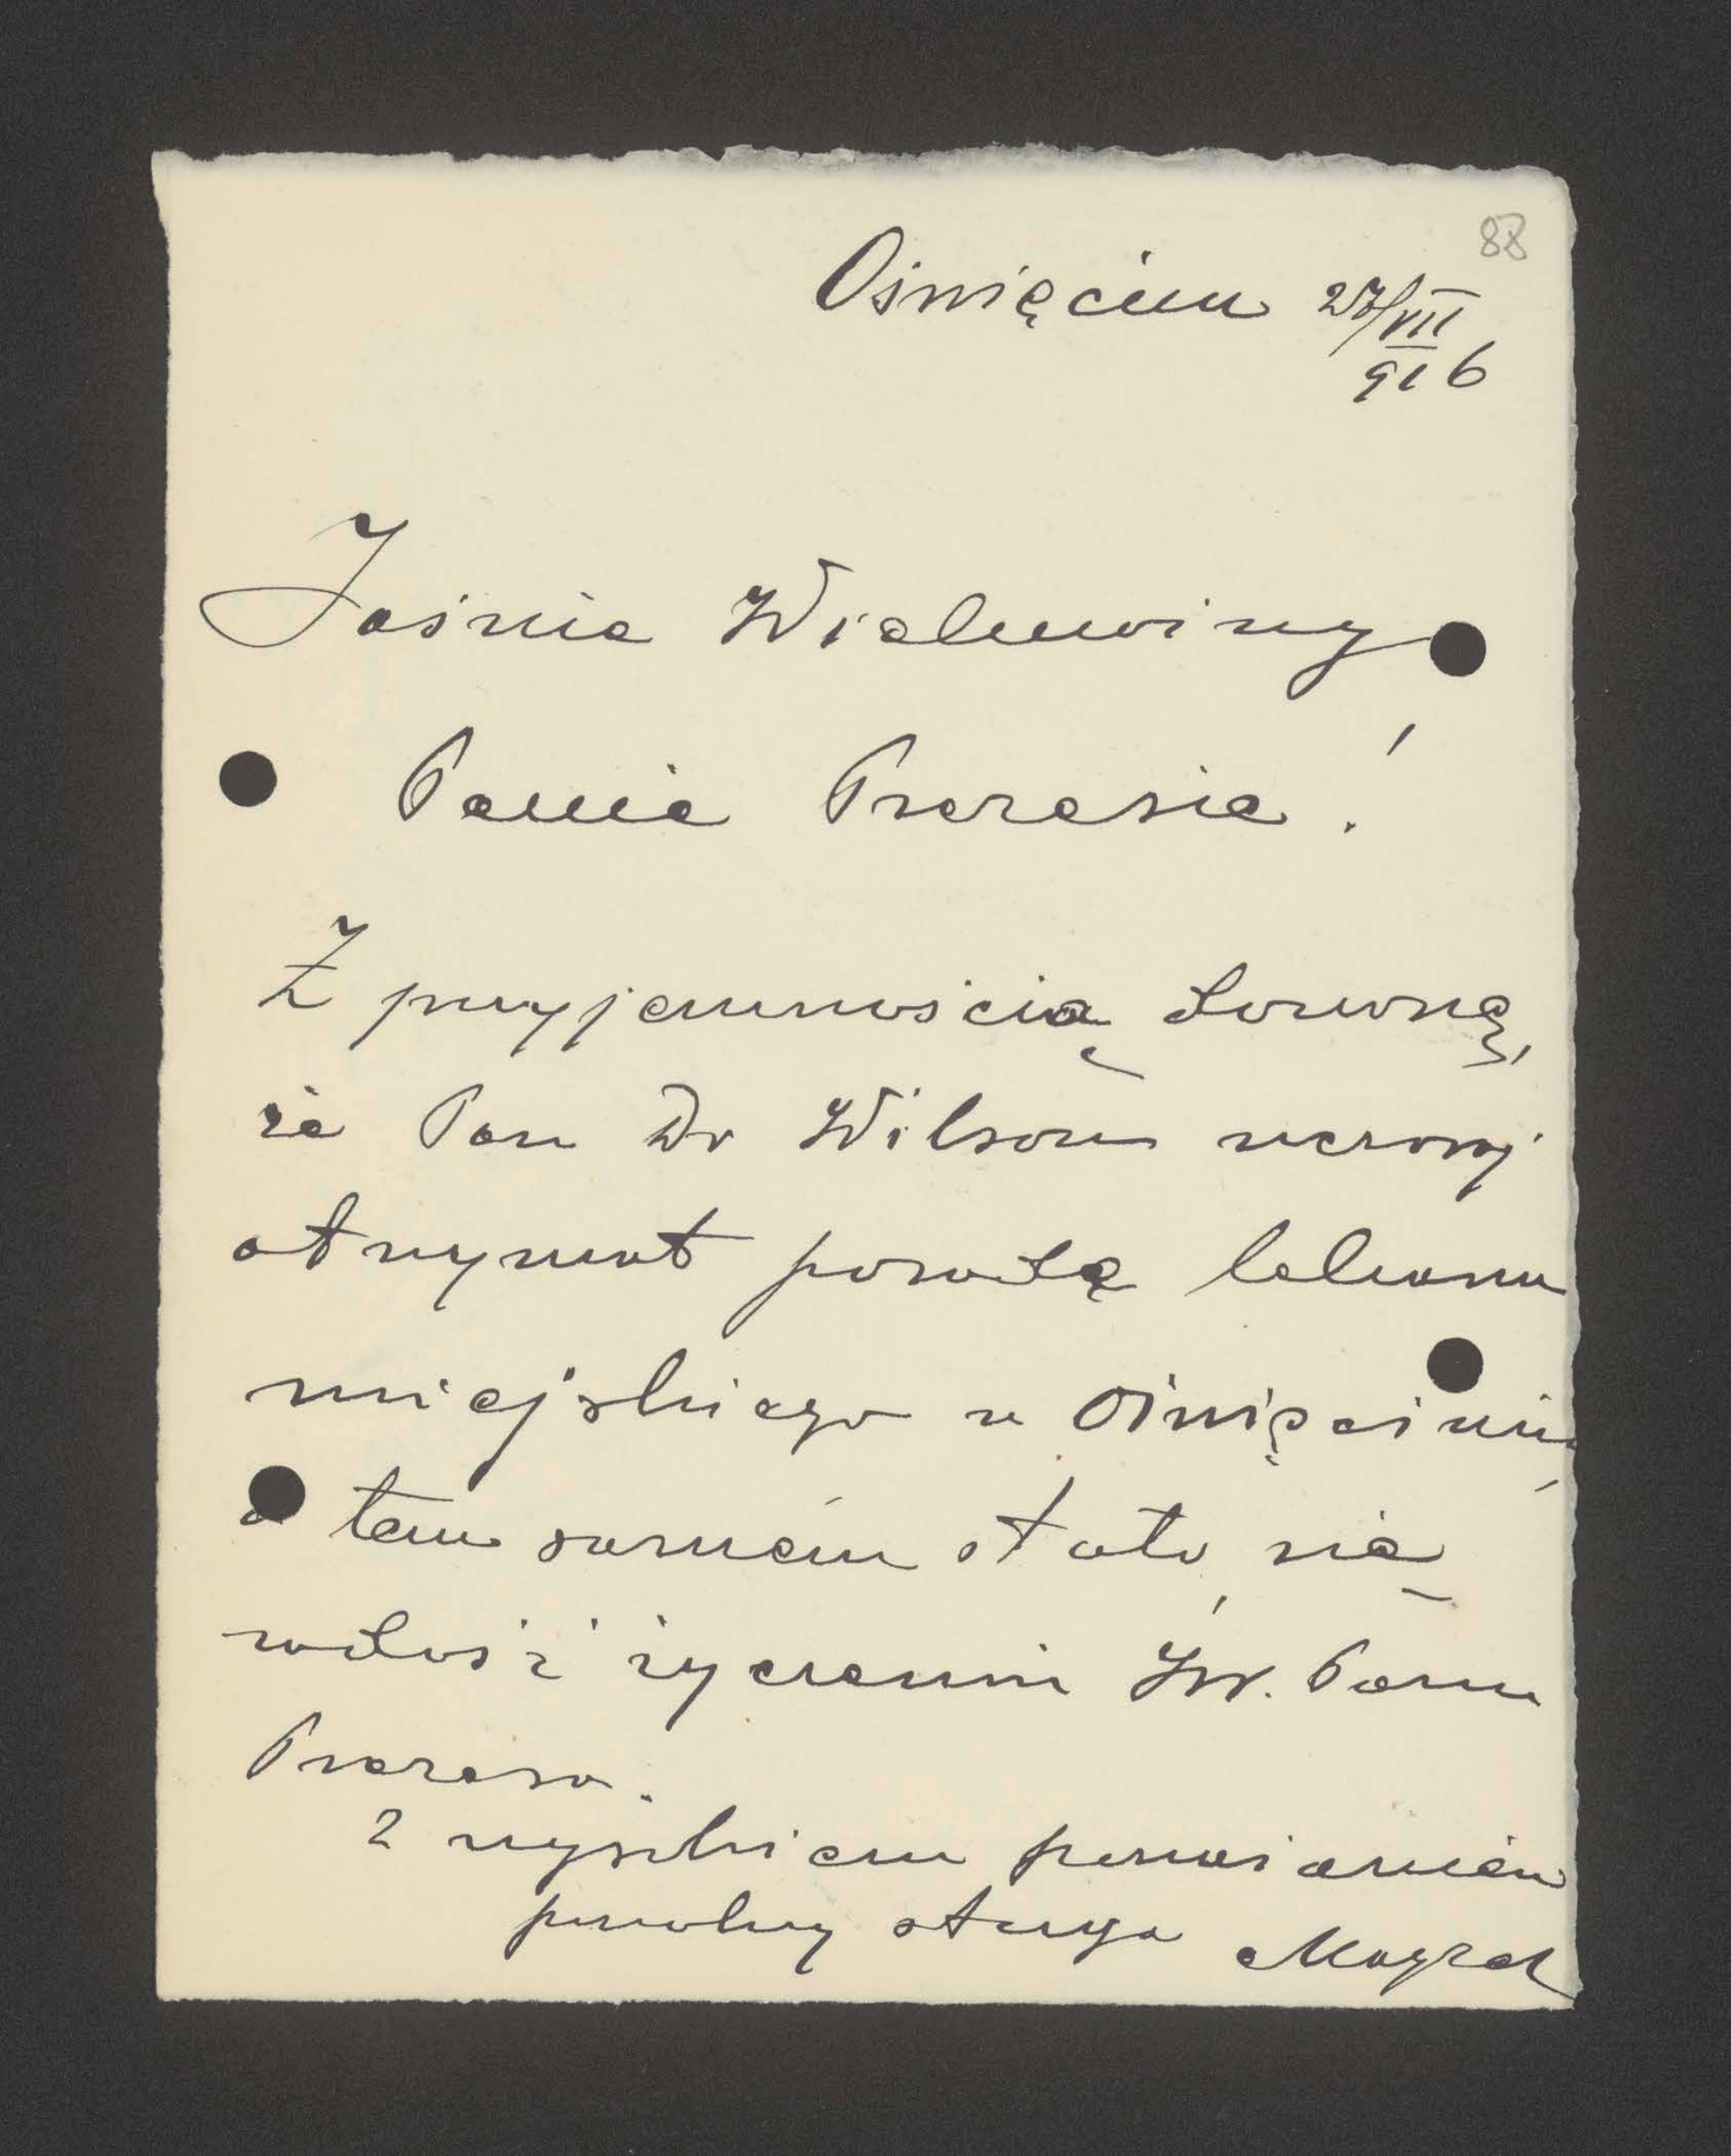 88
Oświęcim 27/VII
916
Jaśnie Wielmożny
Panie Prezesie!
Z przyjemnością donoszę,
że Pan Dr Wilson wczoraj
otrzymał posadę lekarza
miejskiego w Oświęcimiu,
a tem samem stało się
zadość życzeniu JW. Pana
Prezesa.
Z wysokiem poważaniem
powolny sługa Mayzel